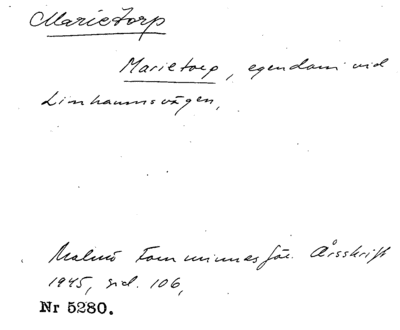 Marietorp
Marietorp, egendom vid
Limhamnsvägen,
Malmö Fornminnesför. Årsskrift
1945, sid. 106,
Nr 5280.